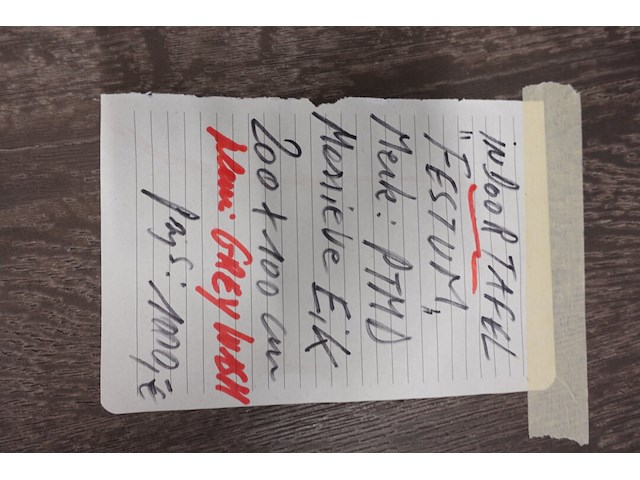 inbooR TAFEL
"FESTUM"
Merk: PTMD
Massieve Eik
200 x 100 cm
GREY WASH
Prijs: 1000,- €